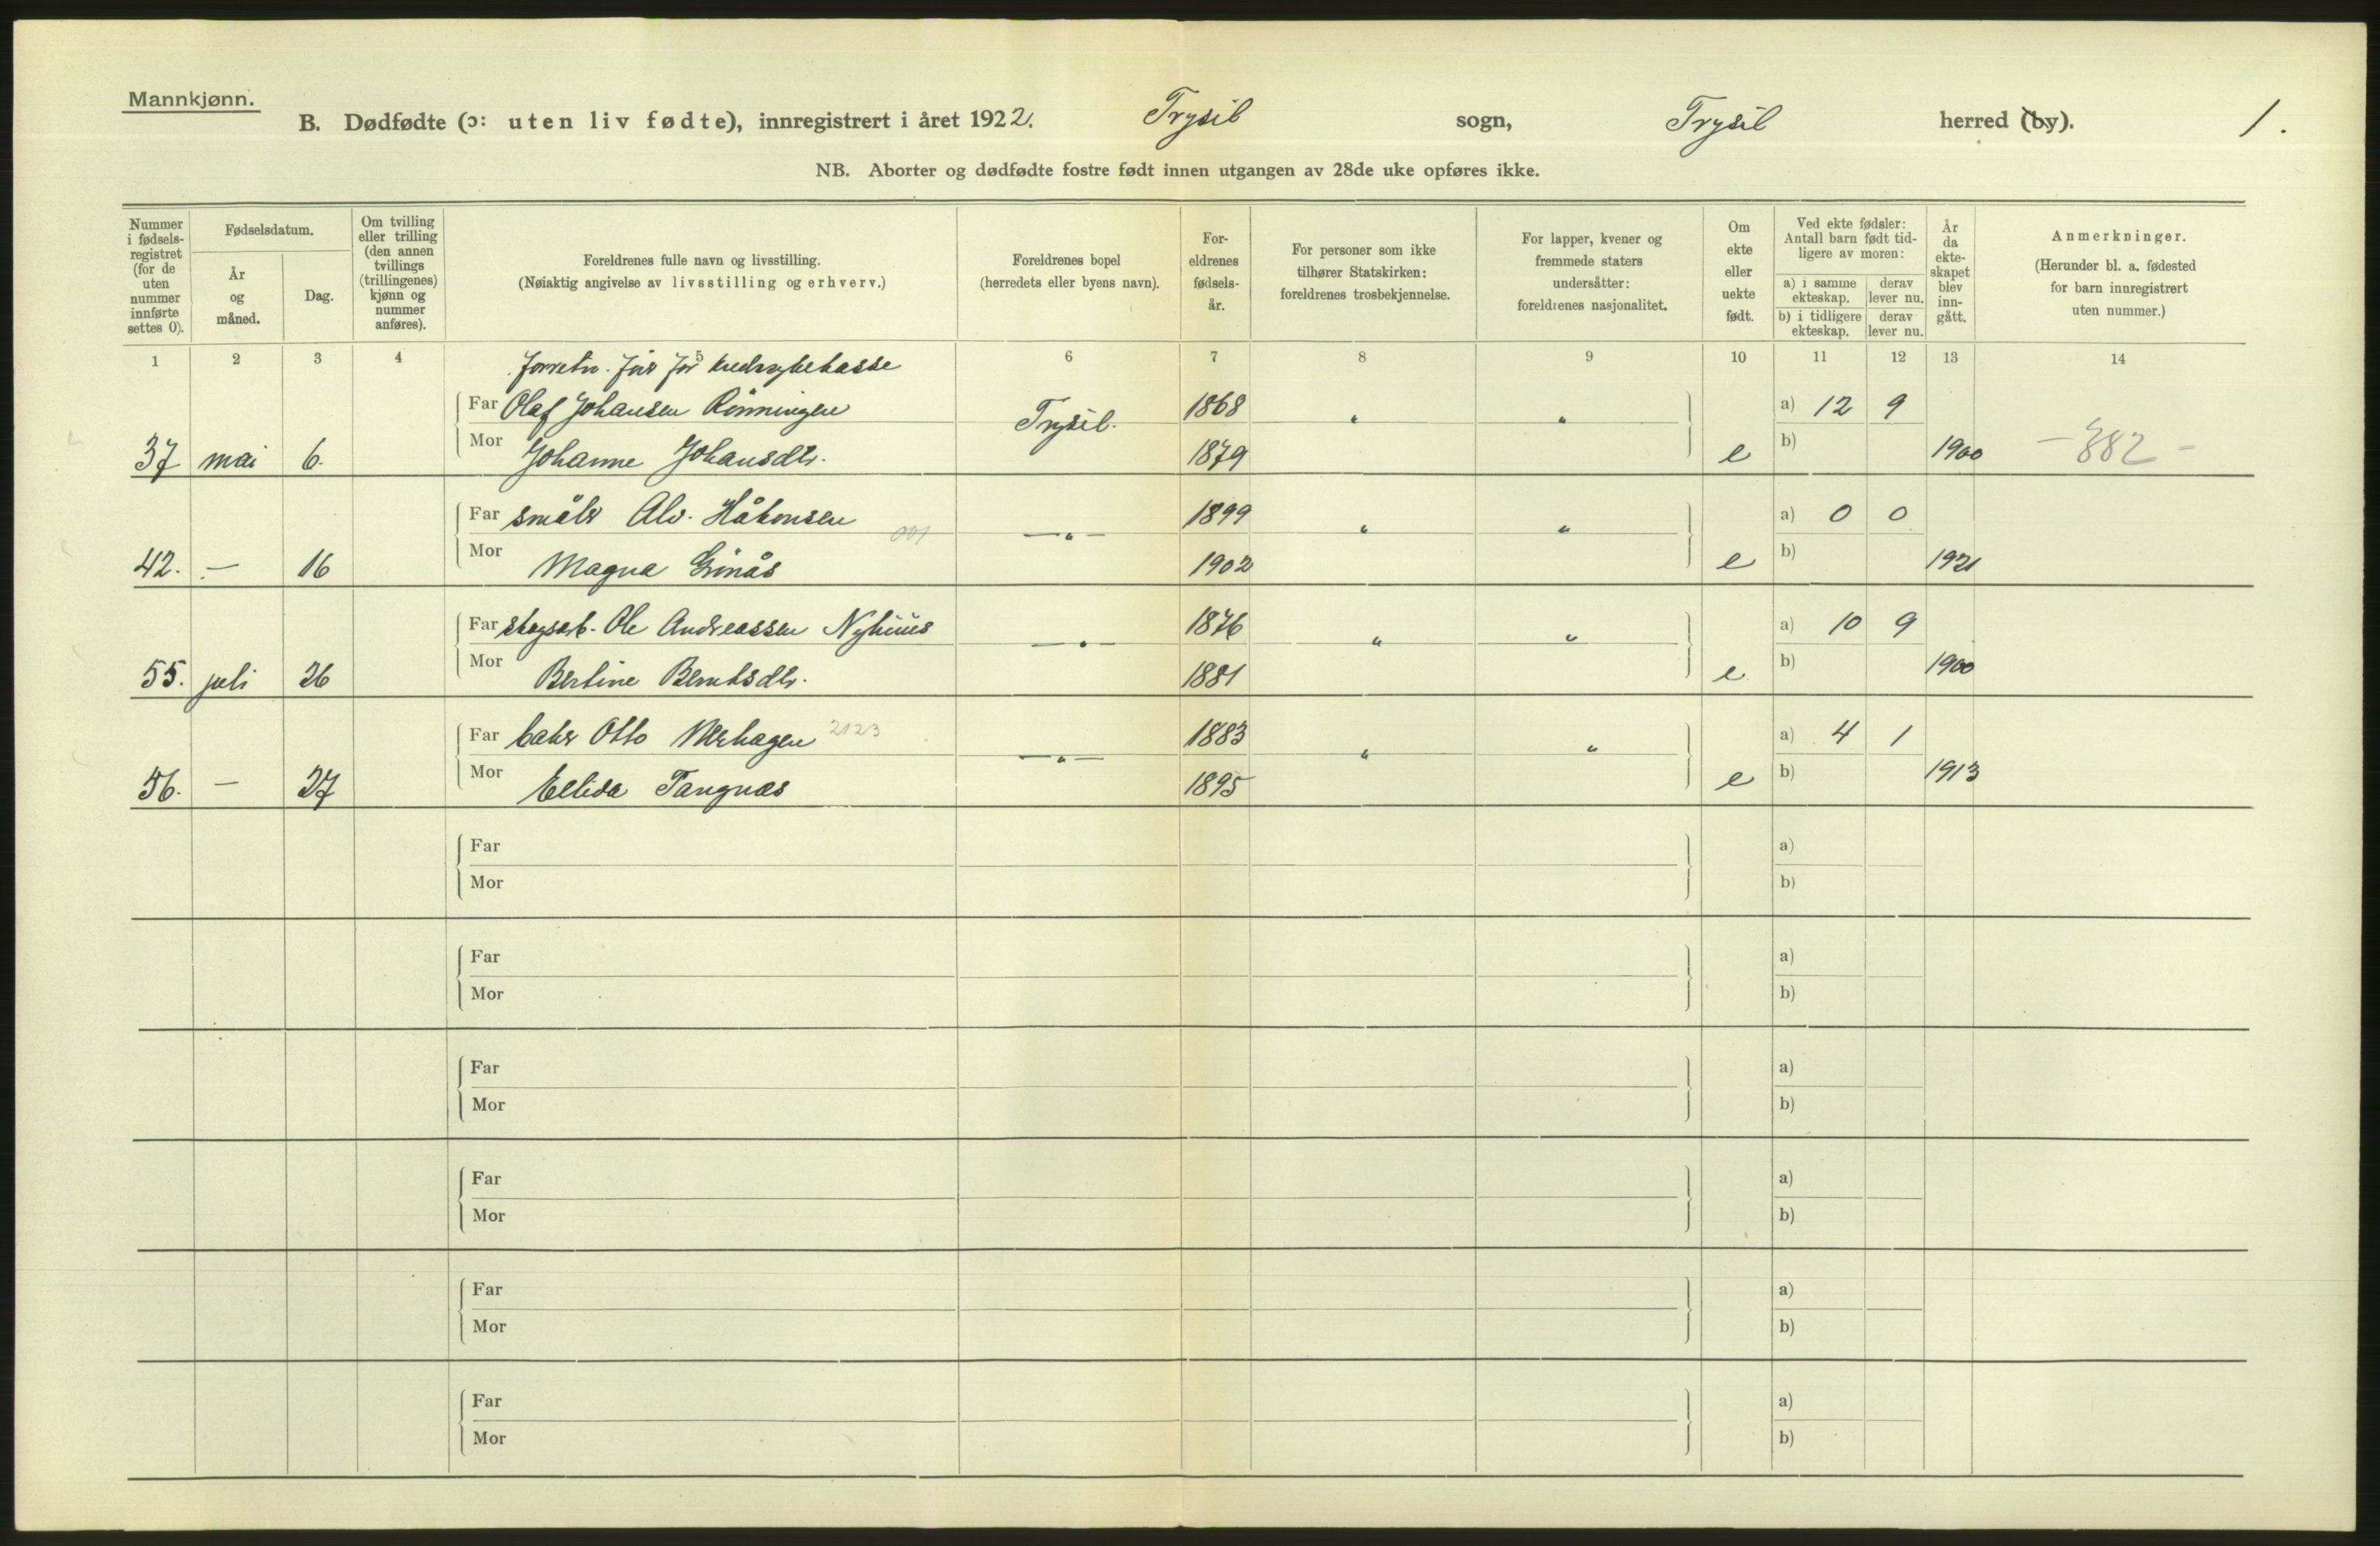 Mannkjønn.
B. Dødfødte (ɔ: uten liv fødte), innregistrert i året 1922. Trysil sogn, Trysil herred (by). 1.
NB. Aborter og dødfødte fostre født innen utgangen av 28de uke opføres ikke.
Nummer i fødsels-registret (for de uten nummer innførte settes 0).
Fødselsdatum.
År og måned.
Dag.
Om tvilling eller trilling (den annen tvillings (trillingenes) kjønn og nummer anføres).
Foreldrenes fulle navn og livsstilling.
(Nøiaktig angivelse av livsstilling og erhverv.)
Foreldrenes bopel
(herredets eller byens navn).
For-eldrenes fødsels-år.
For personer som ikke tilhører Statskirken: foreldrenes trosbekjennelse.
For lapper, kvener og fremmede staters undersåtter: foreldrenes nasjonalitet.
Om ekte eller uekte født.
Ved ekte fødsler: Antall barn født tid-ligere av moren:
a) i samme ekteskap. derav lever nu.
b) i tidligere ekteskap. derav lever nu.
År da ekte-skapet blev inn-gått.
Anmerkninger.
(Herunder bl. a. fødested for barn innregistrert uten nummer.)
1 2 3 4 5 6 7 8 9 10 11 12 13 14
forretn. før for
Far Olaf Johansen Rönningen Trysil. 1868 " " a) 12 9
37 mai 6. Mor Johanne Johansdtr. 1879 e b) 1900 - 882 -
Far småbr Alv. Håkonsen 001 — " — 1899 " " a) 0 0
42. — 16 Mor Magna Grönås 1902 e b) 1921
Far skogsarb. Ole Andreassen Nyhuus — " — 1876 " " a) 10 9
55. juli 26 Mor Bertine Berntsdtr. 1881 e b) 1900
Far baker Otto 2123 — " — 1883 " " a) 4 1
56. — 27 Mor Ellida Tangnæs 1895 e b) 1913
Far a)
Mor b)
Far a)
Mor b)
Far a)
Mor b)
Far a)
Mor b)
Far a)
Mor b)
Far a)
Mor b)